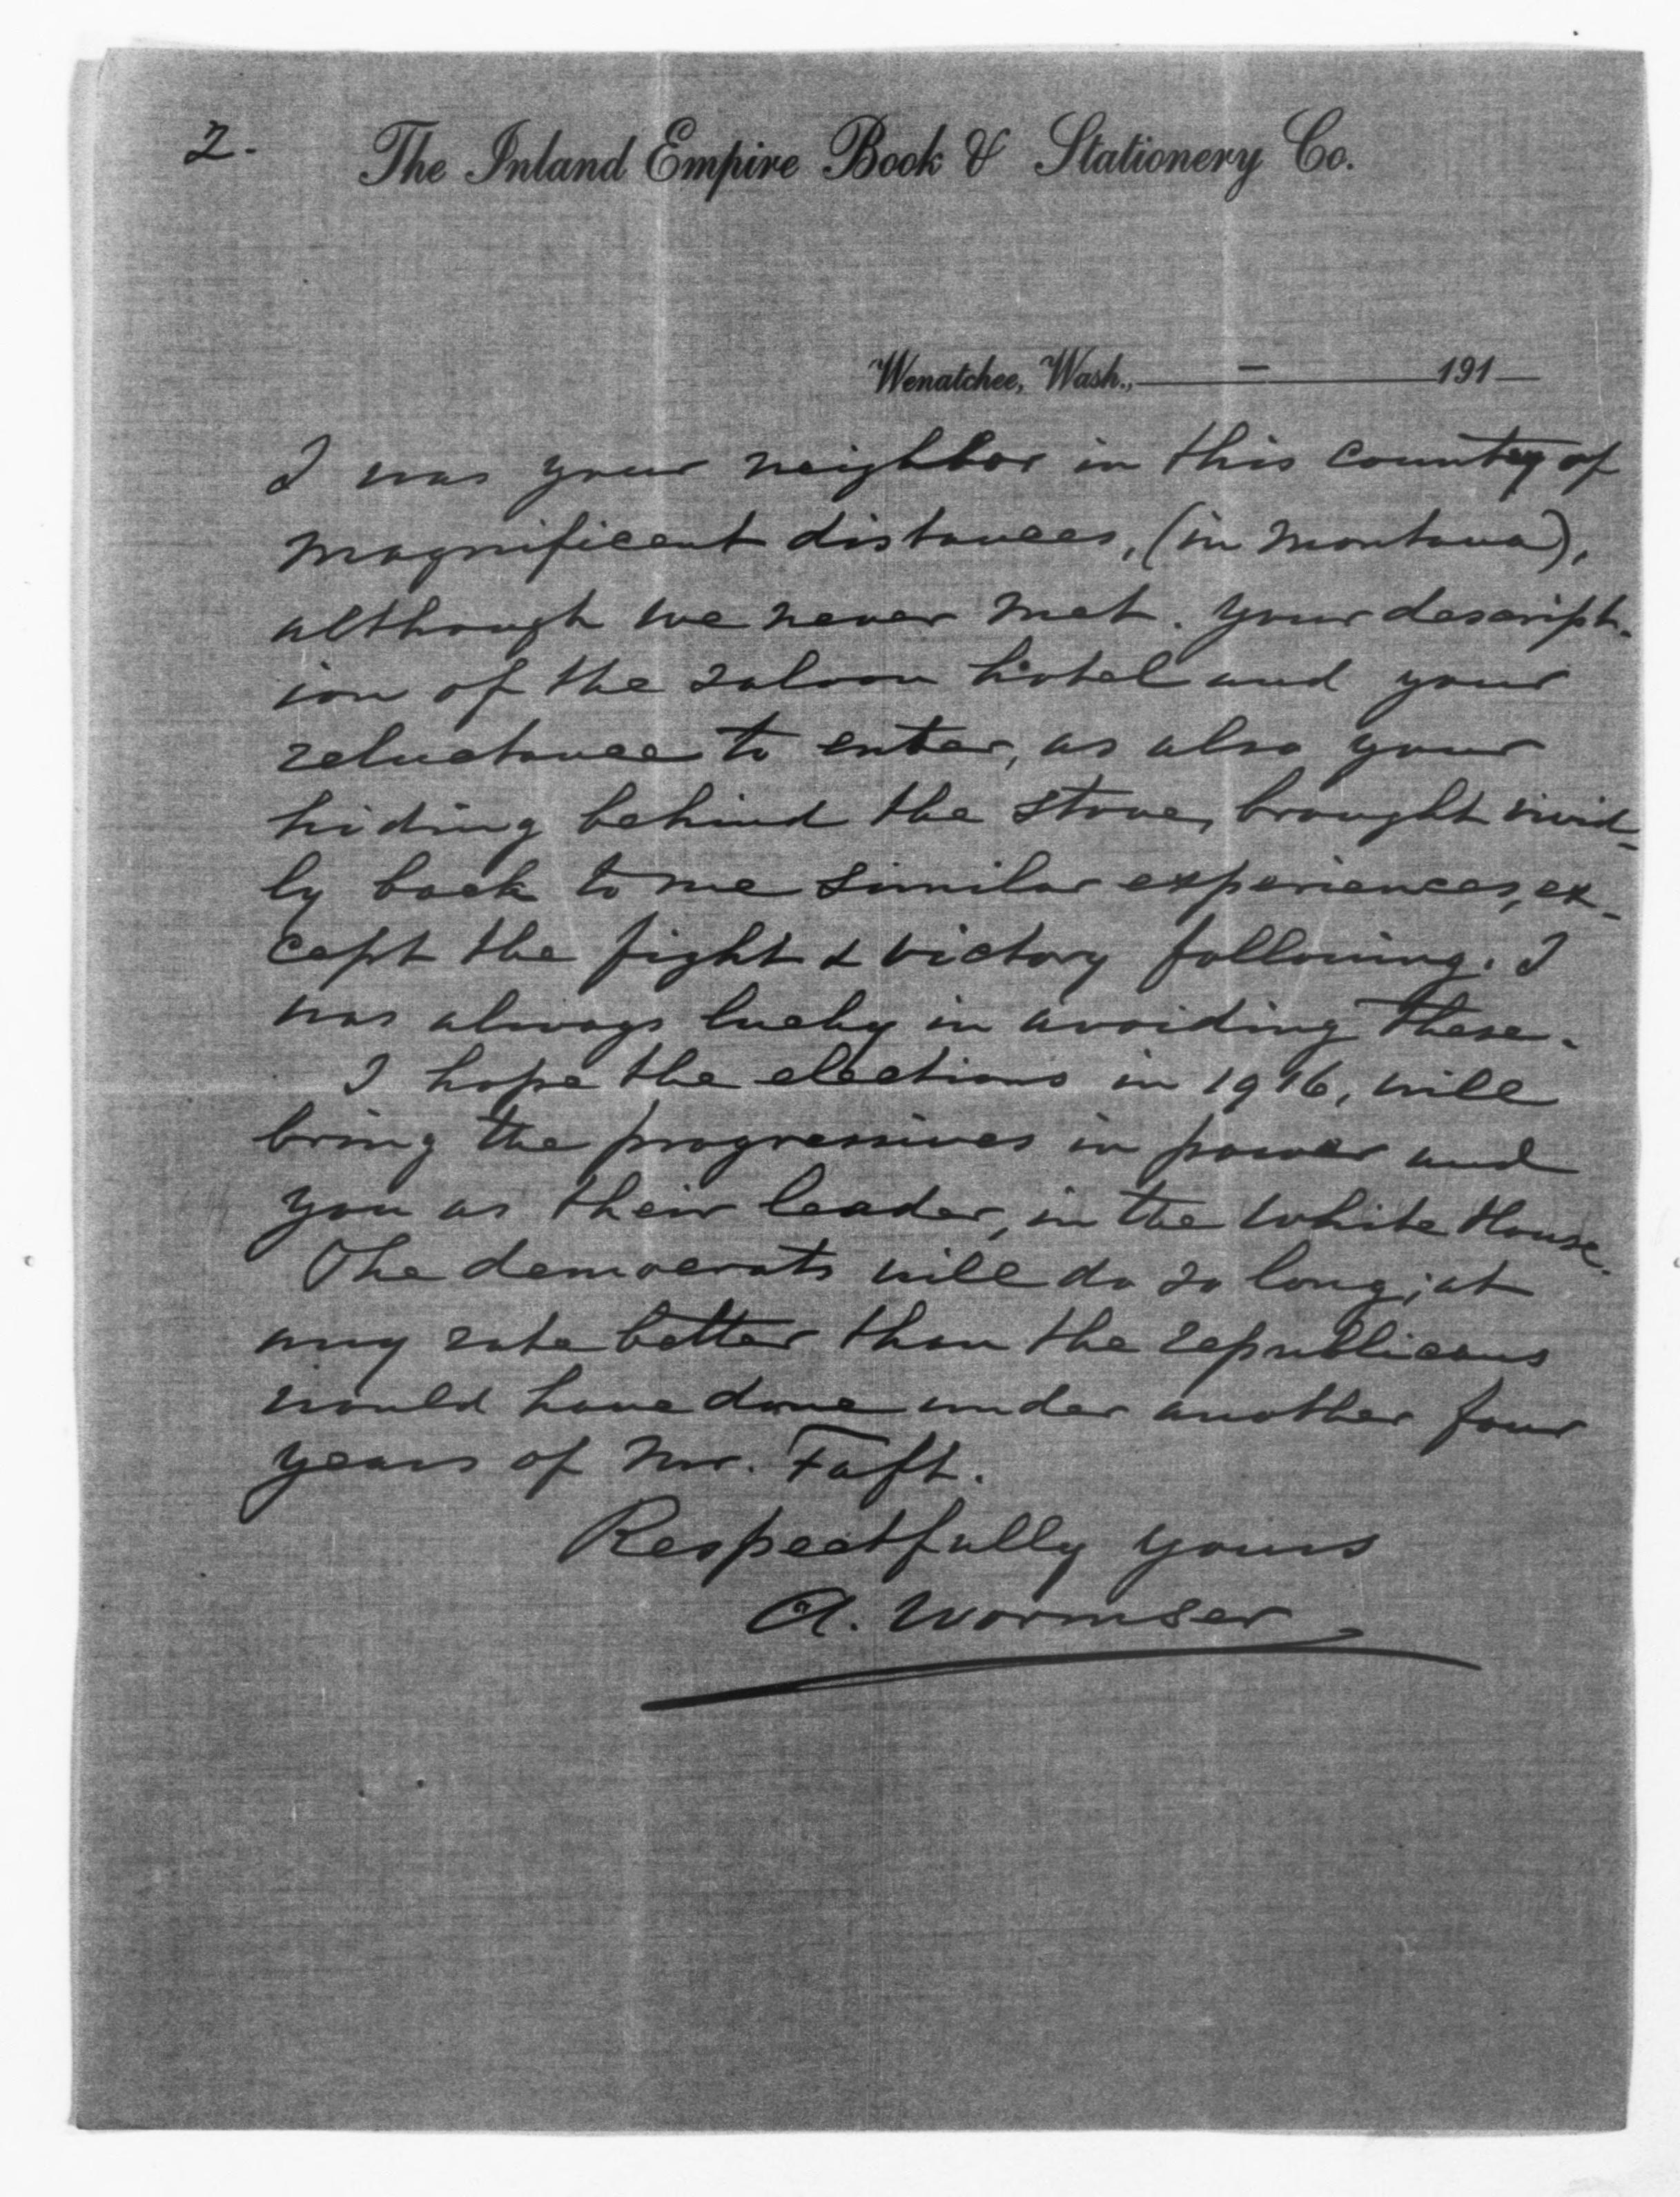 2.
The Inland Empire Book & Stationery Co.
Wenatchee, Wash., — 191—
I was your neighbor in this country of
magnificent distances, (in Montana),
although we never met. Your descript-
ion of the saloon hotel and your
reluctance to enter, as also your
hiding behind the stove, brought vivid-
ly back to me similar experiences, ex-
cept the fight & victory following. I
was always lucky in avoiding these.
I hope the elections in 1916, will
bring the progressives in power and
you as their leader, in the White House.
The democrats will do so long; at
any rate better than the republicans
would have done under another four
years of Mr. Taft.
Respectfully yours
A. Wormser